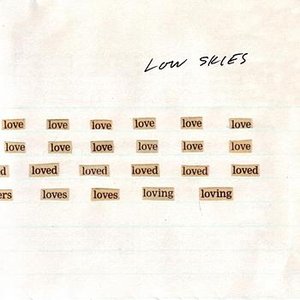 LOW SKIES
love love love love love love
love love love love love love
d loved loved loved loved loved
ers loves loves loving loving